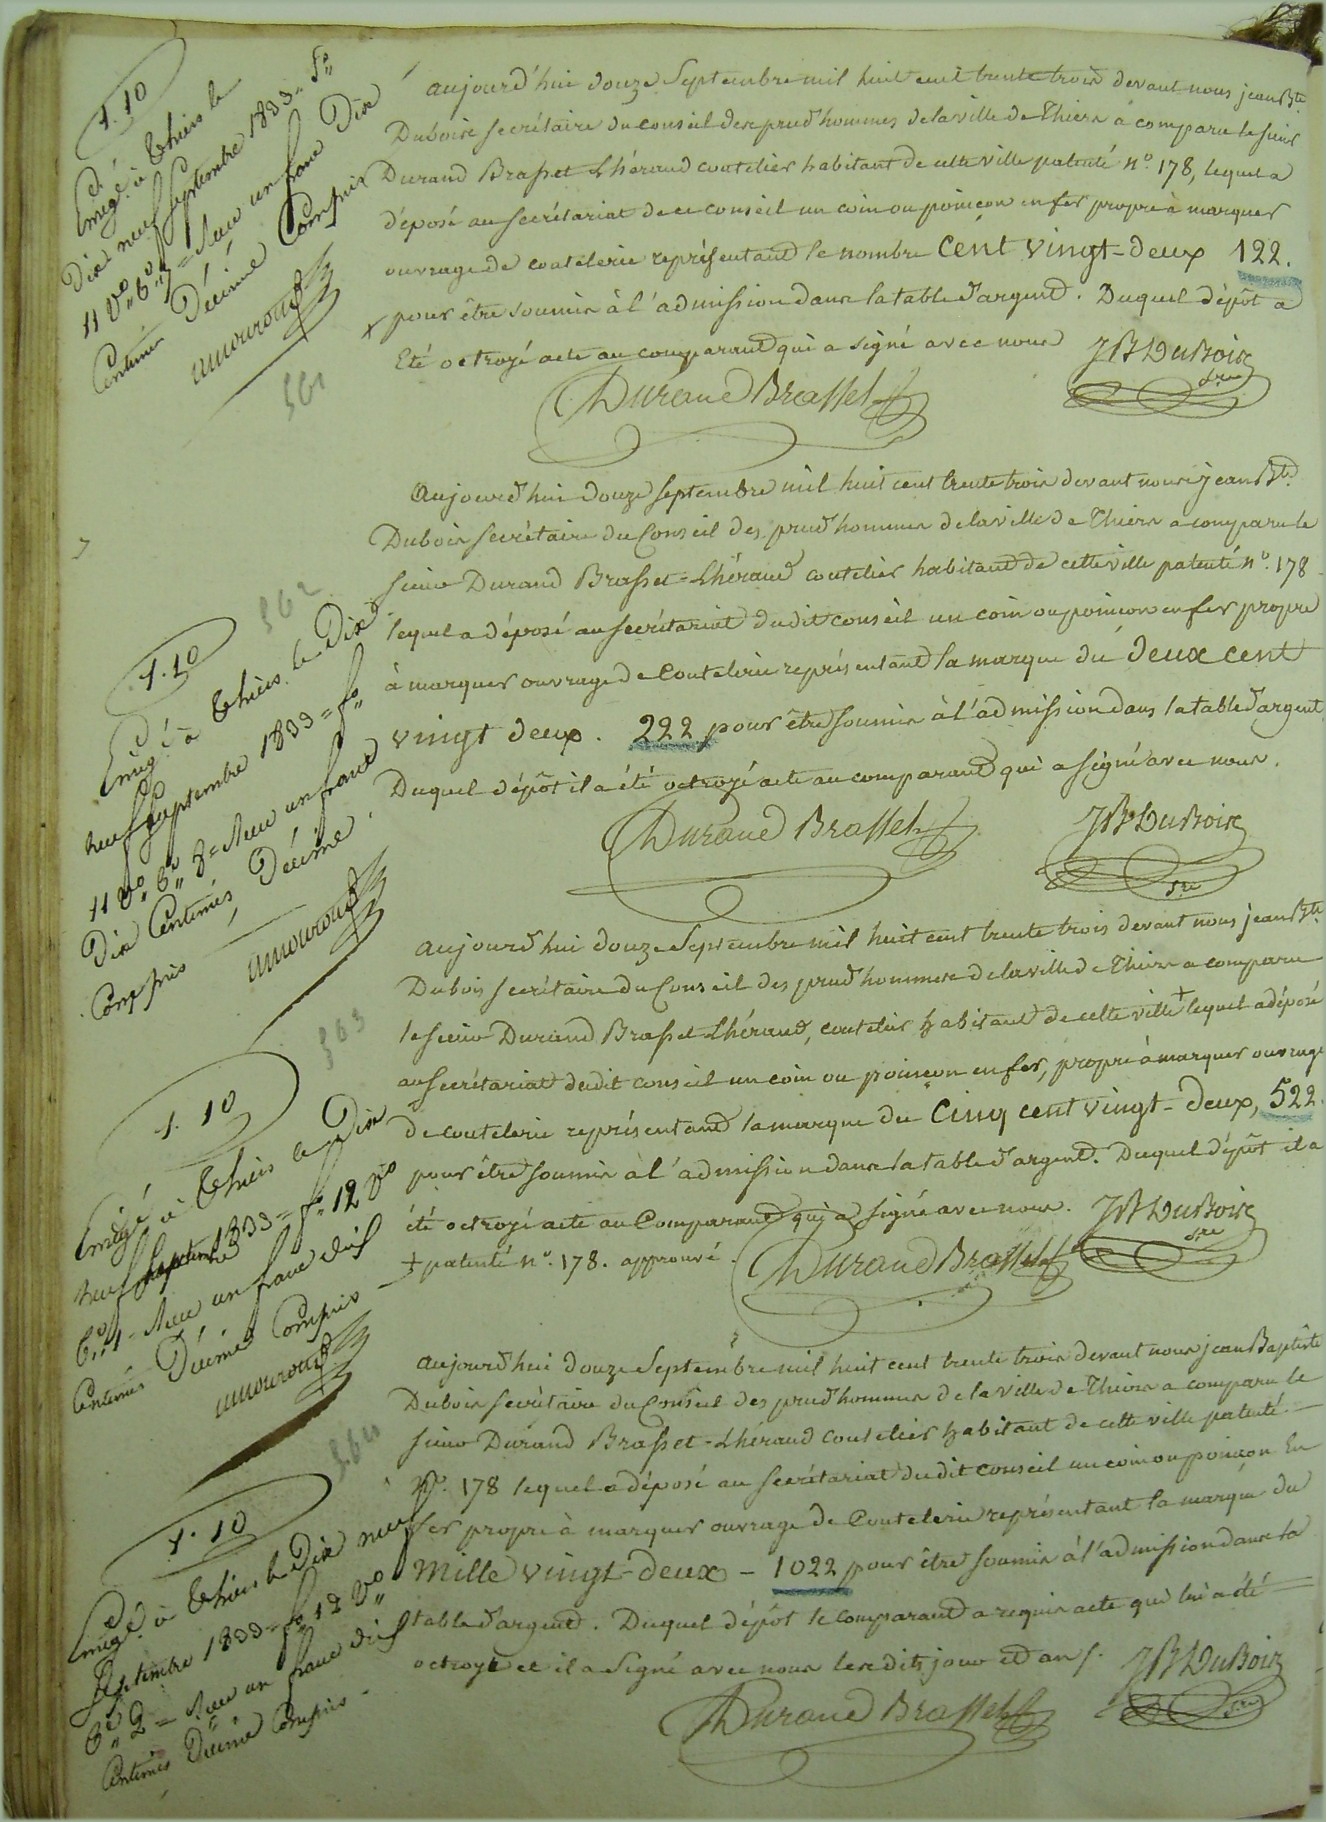 1.10
Enregé à Thiers le
Dix neuf Septembre 1833. fo
11 vo Co 7 = Reçu un franc Dix
Centimes Décime Compris
amouroux
361
aujourd'hui douze Septembre mil huit cent trente trois devant nous jean Bte
Dubois secrétaire du conseil des prud'hommes de la ville de Thiers a comparu le sieur
Durand Brasset Lhéraud coutelier habitant de cette ville patenté no. 178, lequel a
déposé au secrétariat de ce conseil un coin ou poinçon en fer propre à marquer
ouvrage de coutelerie représentant le nombre cent vingt-deux 122.
pour être soumis à l'admission dans la table d'argent. Duquel dépôt a
Eté octroyé acte au comparant qui a signé avec nous
JB Dubois
Sre
Durand Brasset
362
1.10
Enregé à Thiers le Dix
neuf Septembre 1833 = fo
11 vo Co 8 = Reçu un franc
Dix Centimes, Décime
Compris
amouroux
Aujourd'hui douze septembre mil huit cent trente trois devant nous jean Bte
Dubois secrétaire du Conseil des prud'hommes de la ville de Thiers a comparu le
sieur Durand Brasset-Lhéraud coutelier habitant de cette ville patenté no. 178
lequel a déposé au secrétariat dudit conseil un coin ou poinçon en fer propre
à marquer ouvrage de Coutelerie représentant la marque du deux cent
vingt deux. 222 pour être soumis à l'admission dans la table d'argent
Duquel dépôt il a été octroyé acte au comparant qui a signé avec nous.
Durand Brasset
JB Dubois
Sre
363
1.10
Enregé à Thiers le Dix
neuf Septembre 1833 = fo 12 vo
Co 1 = Reçu un franc dix
Centimes Décime Compris
amouroux
aujourd'hui douze Septembre mil huit cent trente trois devant nous jean Bte
Dubois secrétaire du Conseil des prud'hommes de la ville de Thiers a comparu
le sieur Durand Brasset Lhéraud, coutelier habitant de cette ville + lequel a déposé
au secrétariat dudit conseil un coin ou poinçon en fer, propre à marquer ouvrage
de coutelerie représentant la marque du cinq cent vingt-deux, 522.
pour être soumis à l'admission dans la table d'argent. Duquel dépôt il a
été octroyé acte au Comparant qui a signé avec nous.
JB Dubois
Sre
+ patenté no. 178. approuvé.
Durand Brasset
364
1.10
Enregé à Thiers le Dix neuf
Septembre 1833 = fo 12 vo
Co 2 = Reçu un franc dix
Centimes Décime Compris
aujourd'hui douze Septembre mil huit cent trente trois devant nous jean Baptiste
Dubois secrétaire du Conseil des prud'hommes de la ville de Thiers a comparu le
sieur Durand Brasset-Lhéraud coutelier habitant de cette ville patenté
No. 178 lequel a déposé au secrétariat dudit conseil un coin ou poinçon En
fer propre à marquer ouvrage de Coutelerie représentant la marque du
Mille vingt-deux - 1022 pour être soumis à l'admission dans la
table d'argent. Duquel dépôt le comparant a requis acte qui lui a été
octroyé et il a signé avec nous lesdits jour et an /.
JB Dubois
Sre
Durand Brasset